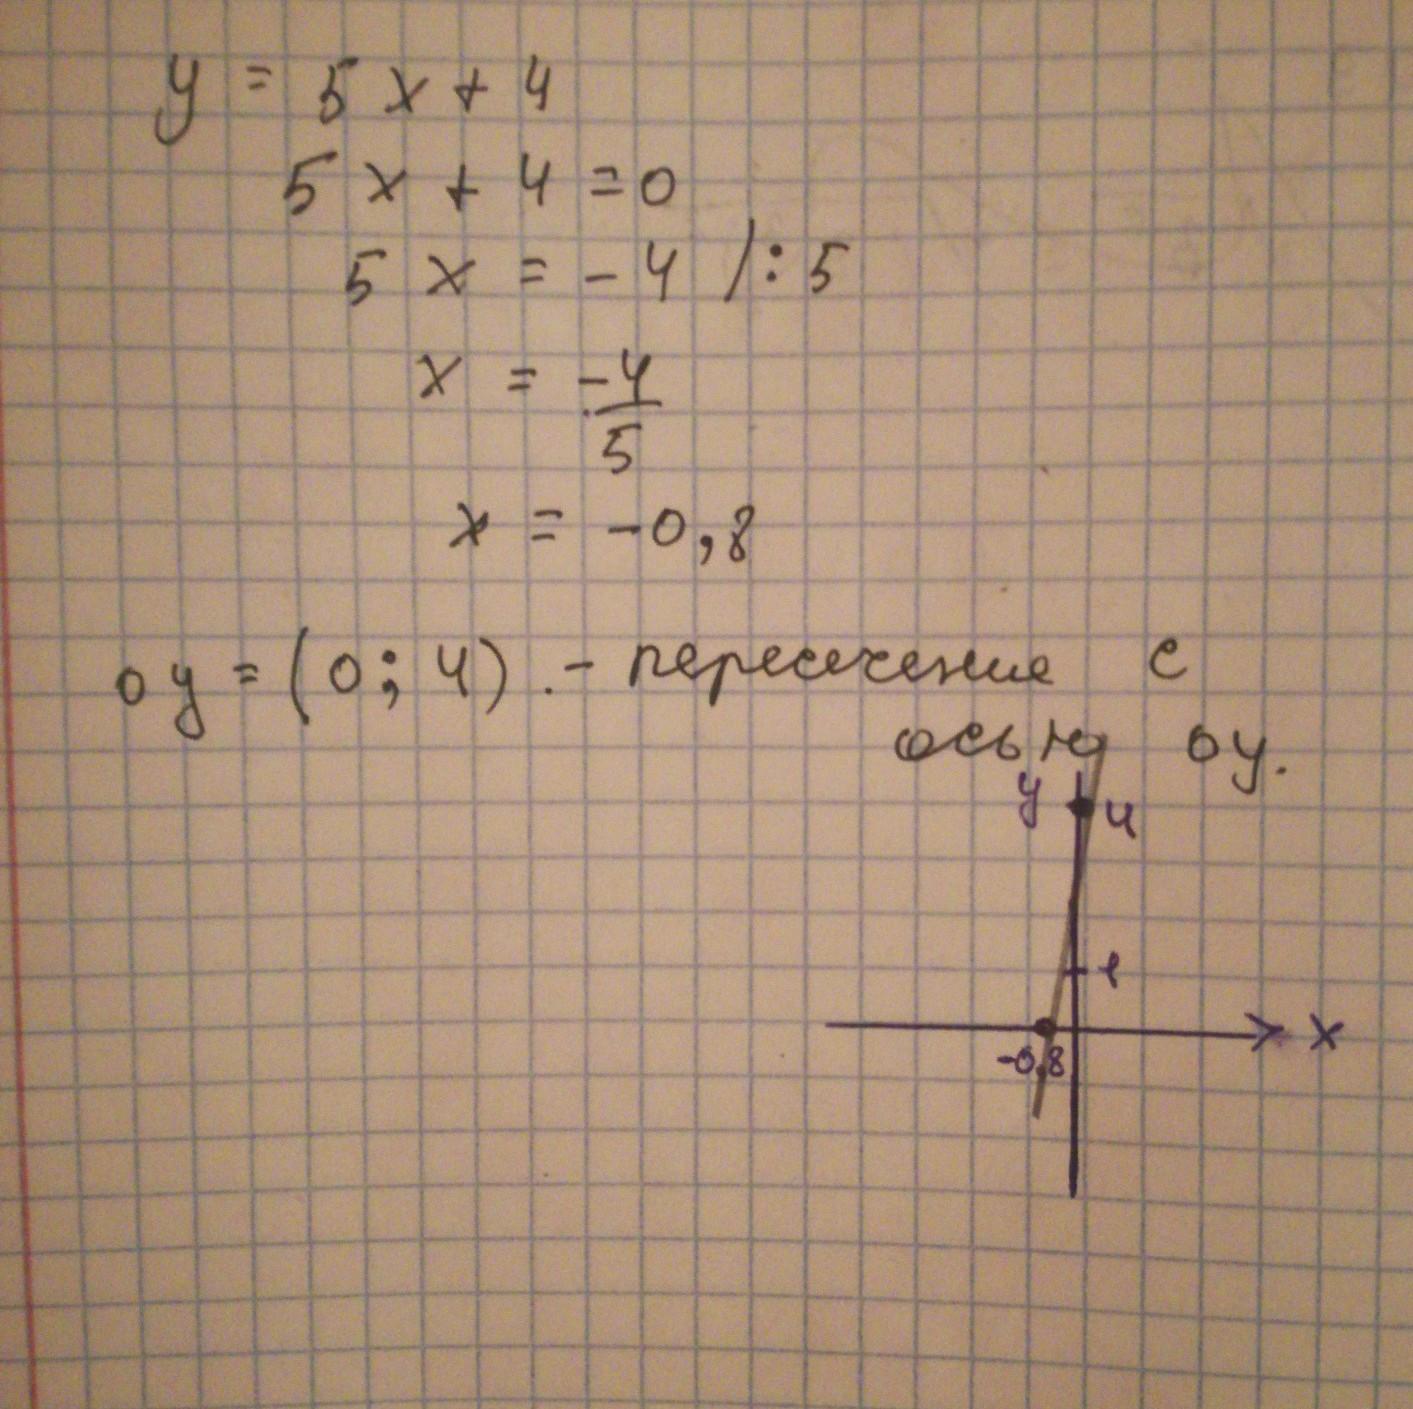 y = 5x + 4
5x + 4 = 0
5x = -4 /:5
x = -4/5
x = -0,8
oy = (0; 4). - пересечение с
осью oy.
y 4
1
x
-0,8